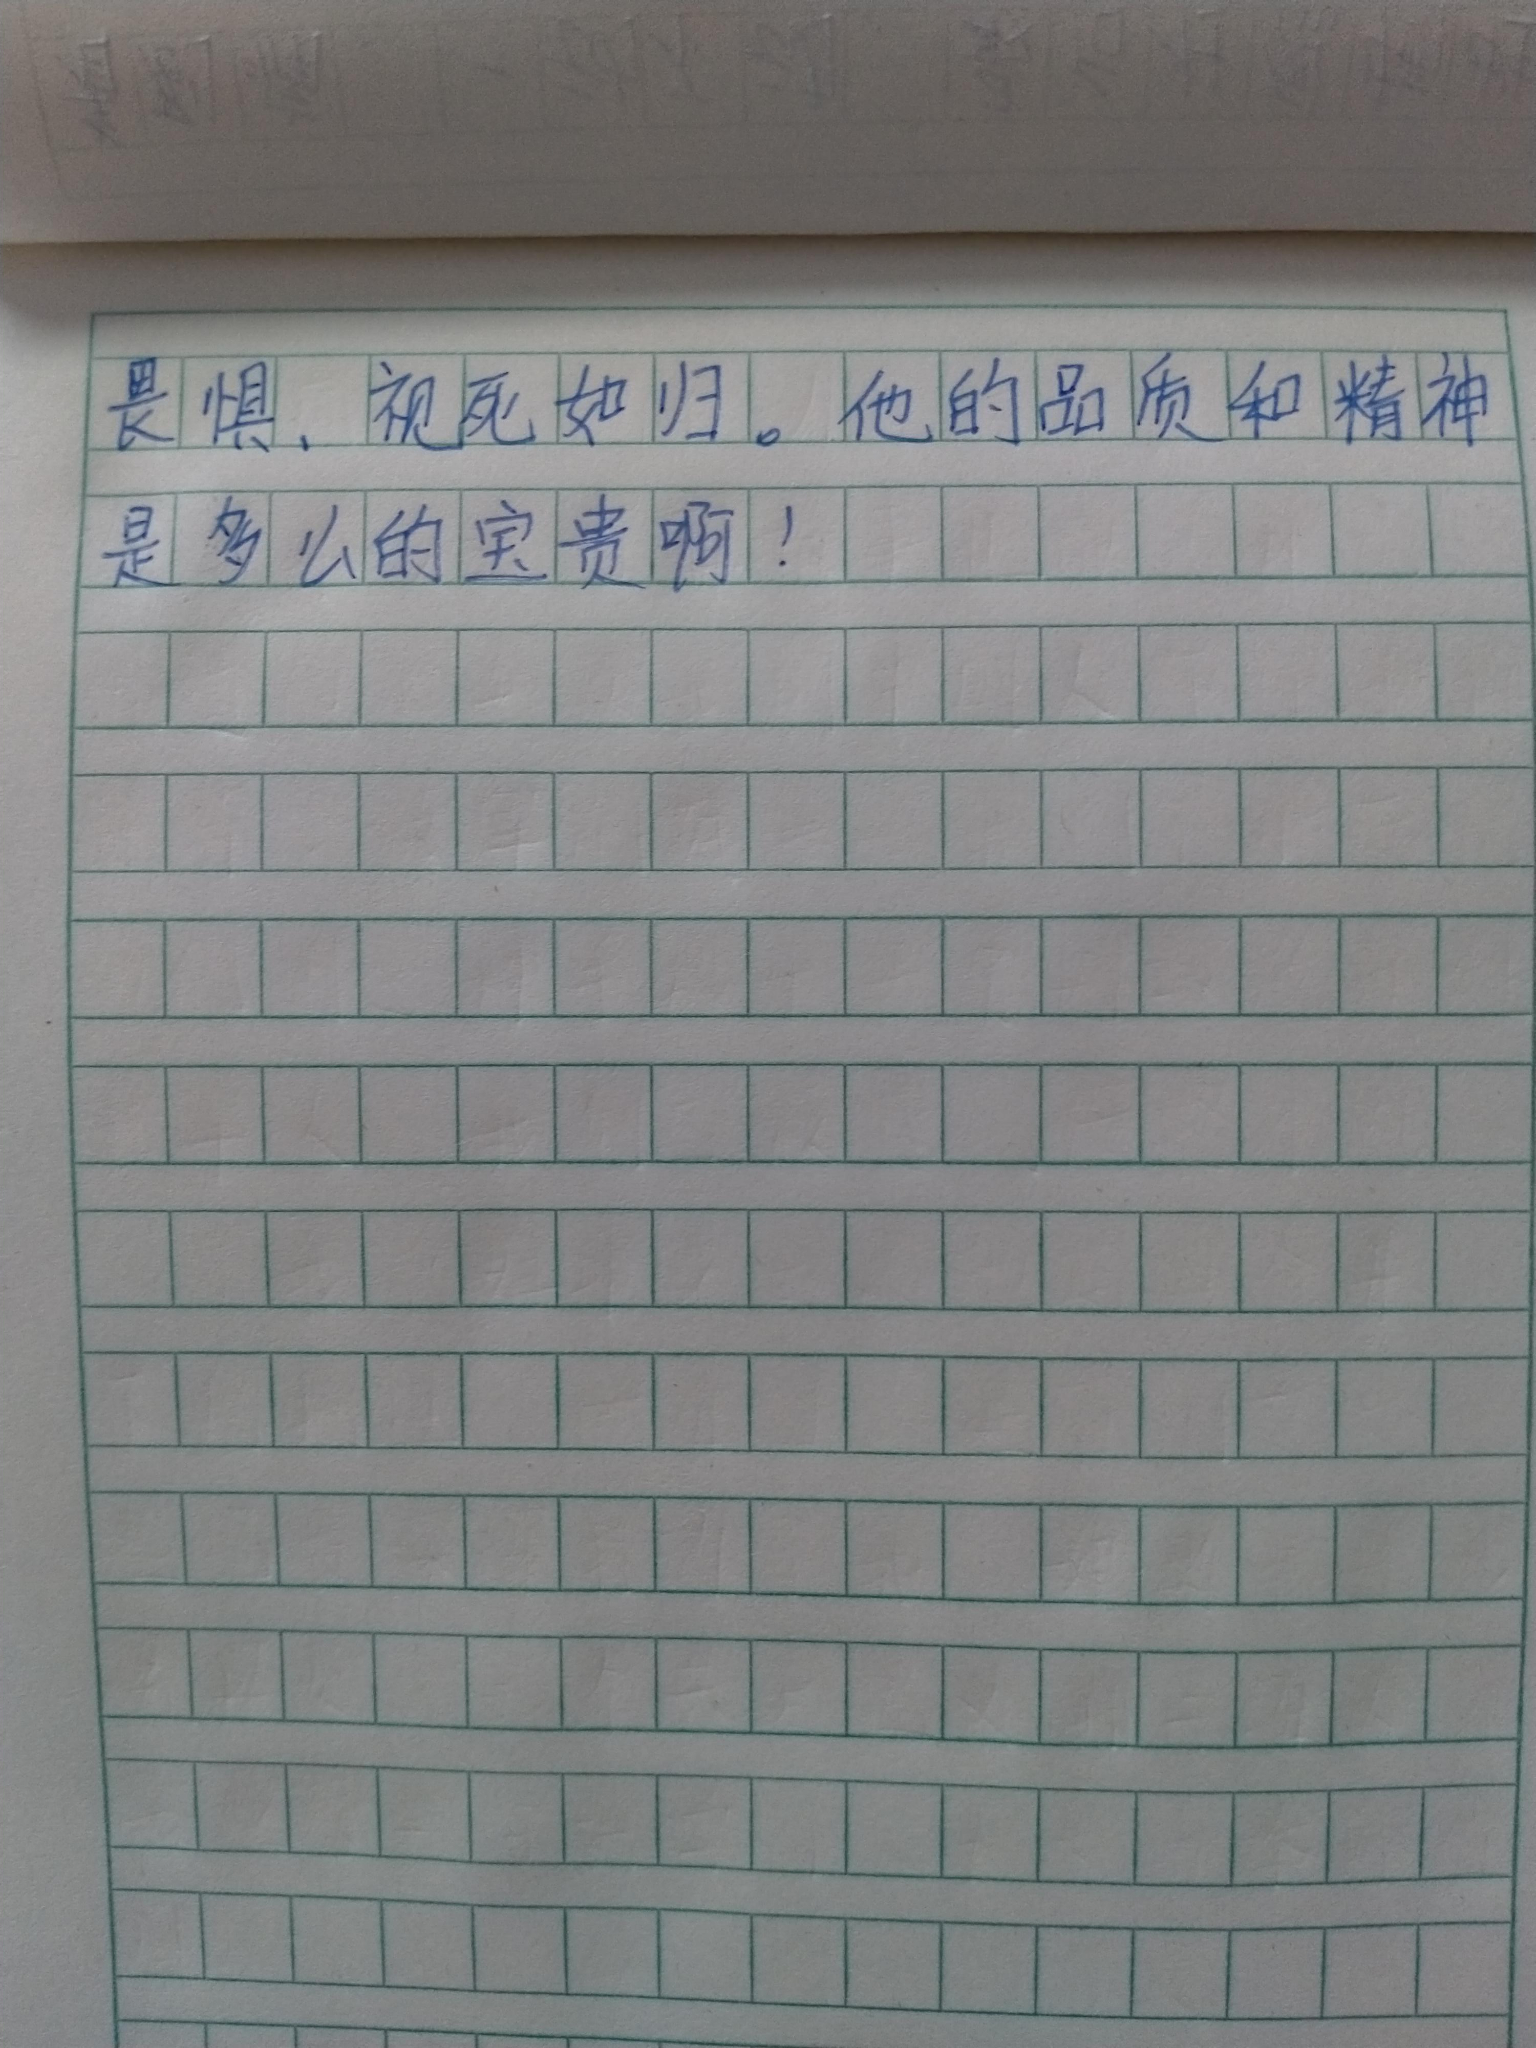 畏惧、视死如归。他的品质和精神
是多么的宝贵啊！